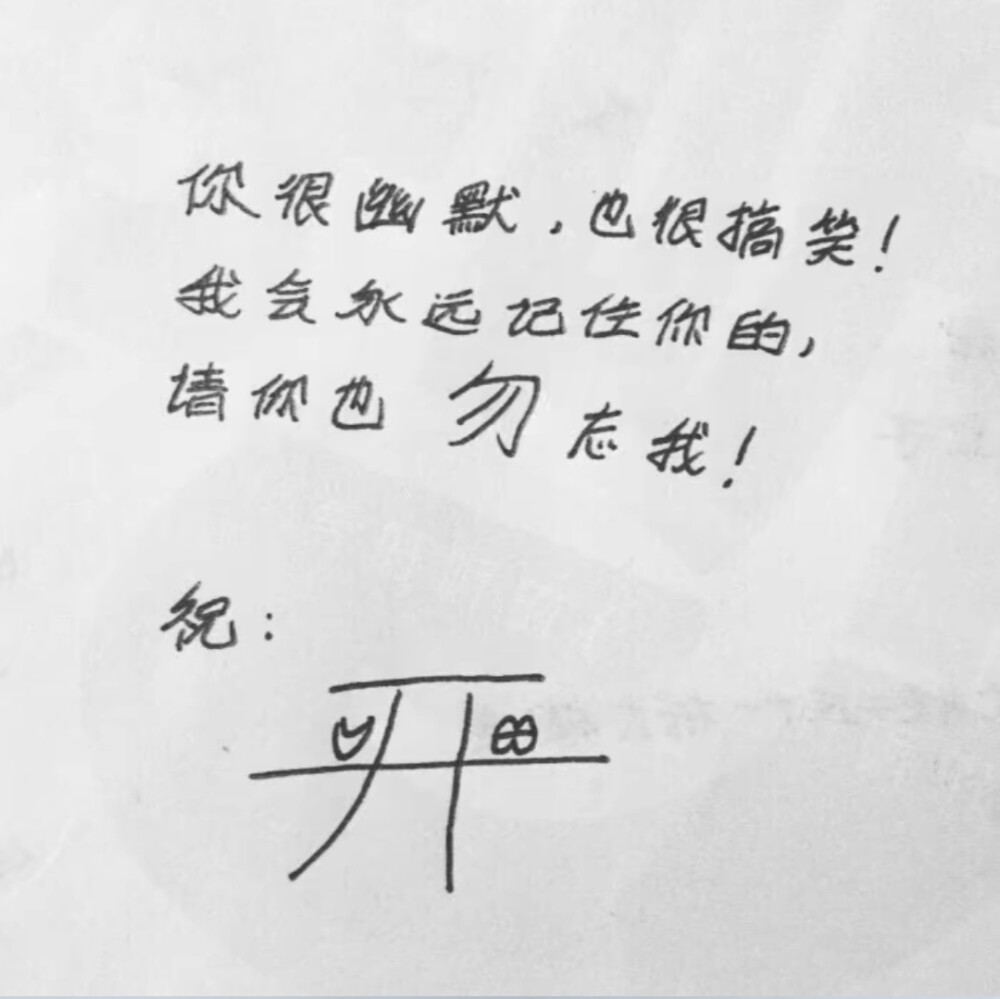 你很幽默,也很搞笑!
我会永远记住你的,
请你也勿忘我!
祝:
开